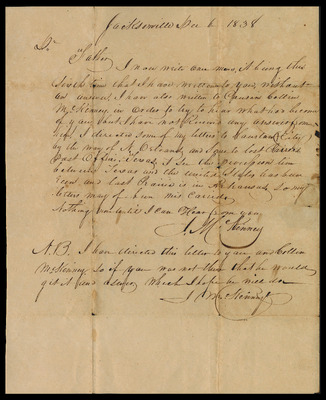 Jacksonville Dec 6 1838
Dr Father
I now write once more, it being the
time that I have written to you without
an answer, I have also written to Cousin Collin
McKenney in order to try to hear what has become
of you but I have not Received any answer from
I directed some of my letters to
by the way of N. Orleans, and some to Lost Prairie
Post Office, Texas, I See the line
between Texas and the United States has been
and Lost Prairie is in Arkansas So my
letters may of been Mis Carried
Nothing until I can Hear from you
J. McKenney
N.B. I have directed this letter to you and Collin
McKenney So if you was not there that he would
get it and answer Which I hope he will do
McKenney